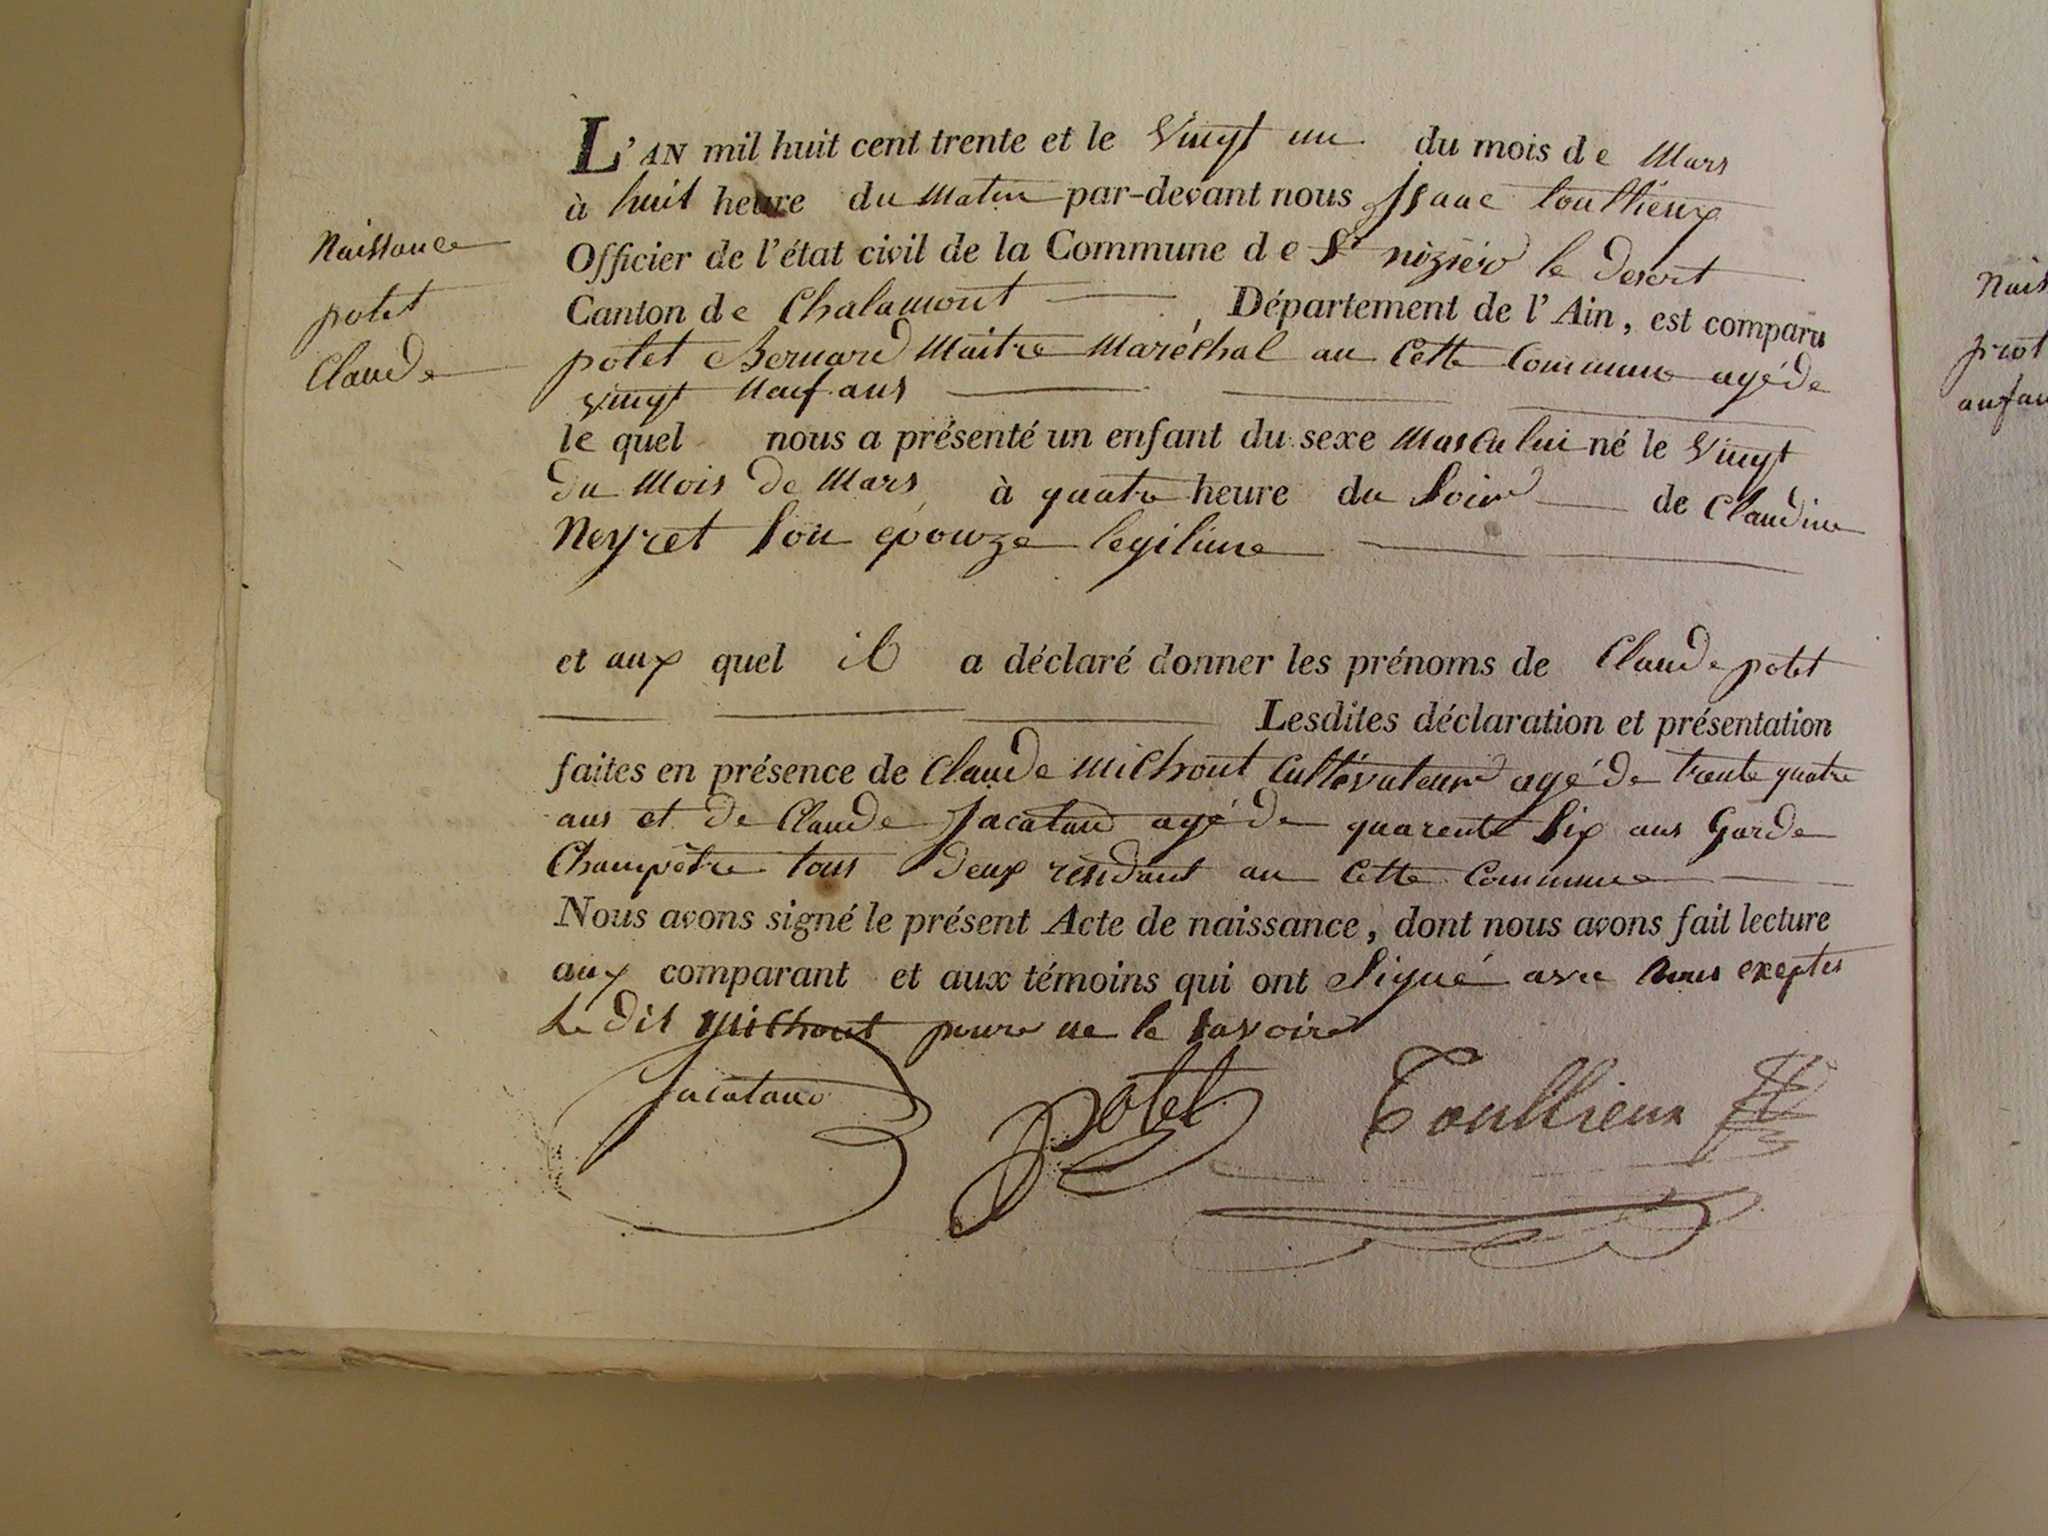 L'AN mil huit cent trente et le vingt un du mois de Mars
à huit heure du matin par-devant nous Isaac Toullieux
Officier de l'état civil de la Commune de St nizier le desert
Canton de Chalamont, Département de l'Ain, est comparu
potet Bernard Maître Maréchal au Cette Commune agé de
vingt Neuf ans
le quel nous a présenté un enfant du sexe Masculin né le vingt
du Mois de Mars à quatre heure du Soir de Claudine
Neyret Son épouze legitime
et aux quel il a déclaré donner les prénoms de Claude potet
Lesdites déclaration et présentation
faites en présence de Claude Michout Cultivateur agé de trente quatre
ans et de Claude Jacataud agé de quarente Six ans Garde
Champêtre tous deux résidant au Cette Commune
Nous avons signé le présent Acte de naissance, dont nous avons fait lecture
aux comparant et aux témoins qui ont Signé avec nous exeptés
Le dit Michout pour ne le savoire
Jacataud potet Toullieux
Naissance
potet
Claude
Nais